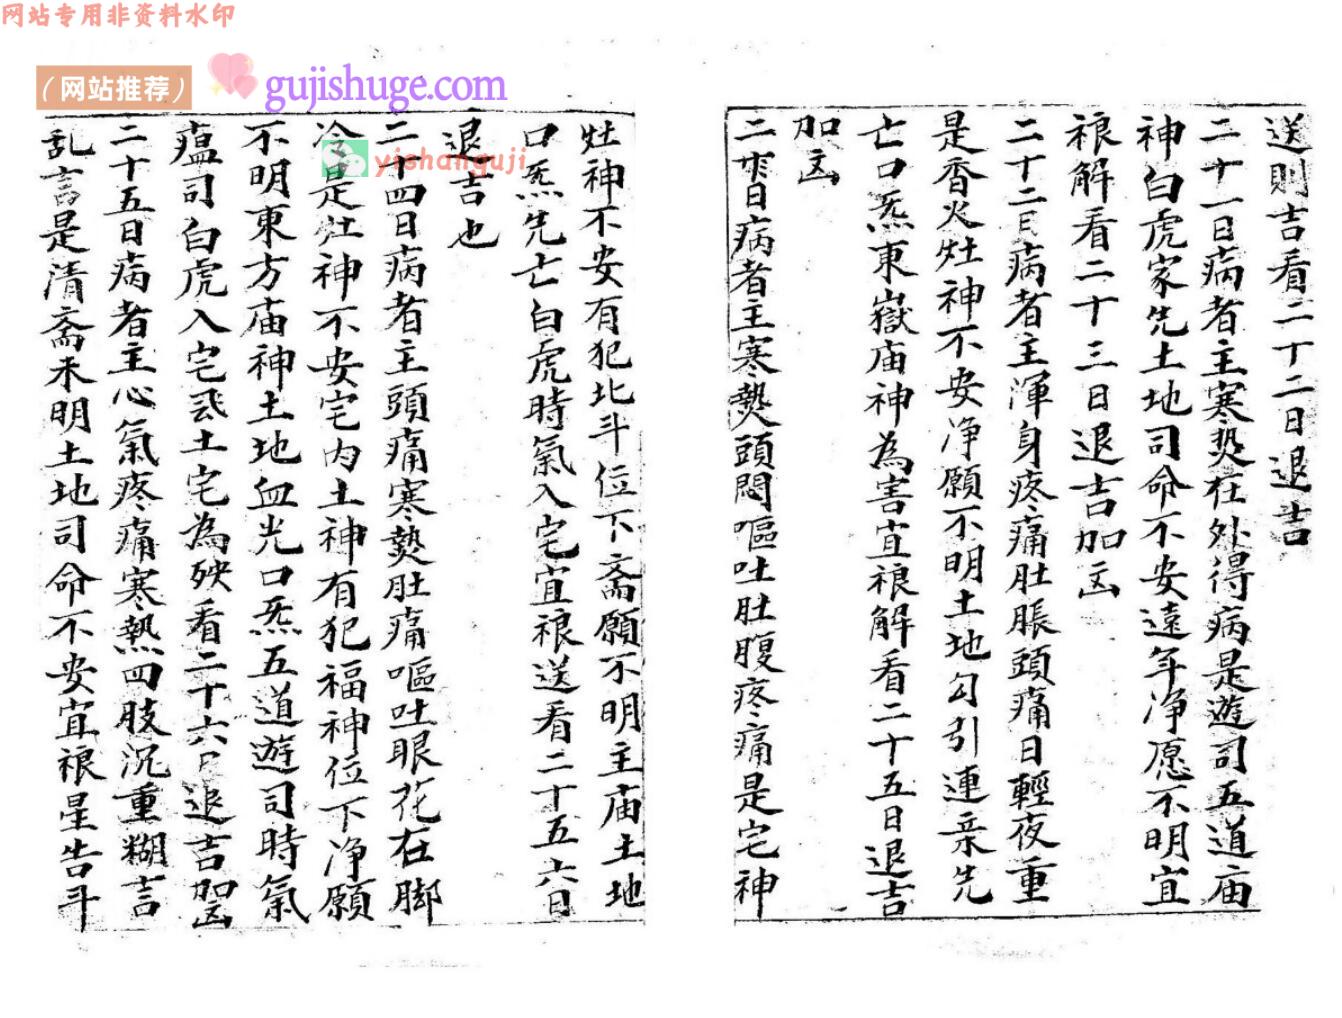 网站专用非资料水印
（网站推荐）
gujishuge.com
yishanguji
送則吉看二十二日退吉
二十一日病者主寒熱在外得病是遊司五道庙
神白虎家先土地司命不安遠年净愿不明宜
禳解看二十三日退吉加凶
二十二日病者主渾身疼痛肚脹頭痛日輕夜重
是香火灶神不安净願不明土地勾引連亲先
亡口炁東嶽庙神為害宜禳解看二十五日退吉
加凶
二十三日病者主寒熱頭悶嘔吐肚腹疼痛是宅神
灶神不安有犯北斗位下斋願不明主庙土地
口炁先亡白虎時氣入宅宜禳送看二十五六日
退吉也
二十四日病者主頭痛寒熱肚痛嘔吐眼花在脚
冷是灶神不安宅内土神有犯福神位下净願
不明東方庙神土地血光口炁五道遊司時氣
瘟司白虎入宅土宅為殃看二十六日退吉加凶
二十五日病者主心氣疼痛寒熱四肢沉重糊言
乱言是清斋未明土地司命不安宜禳星告斗